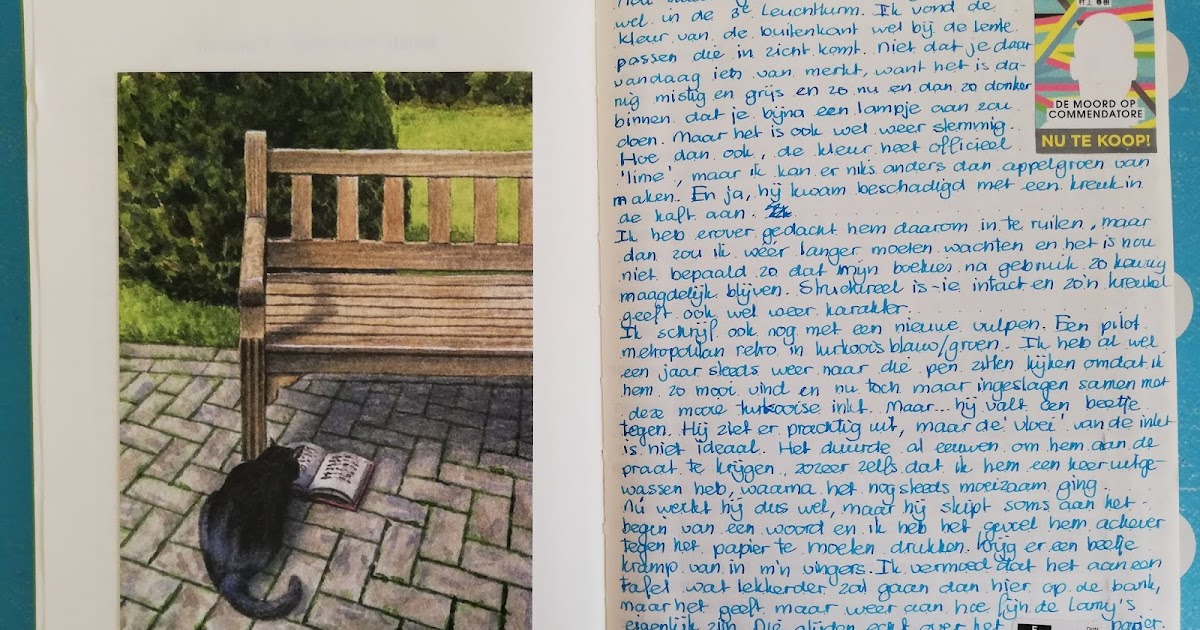 wel in de 3e Leuchtturm. Ik vond de
kleur van de buitenkant wel bij de lente
passen die in zicht komt. Niet dat je daar
vandaag iets van merkt, want het is da-
nig mistig en grijs en zo nu en dan zo donker
binnen dat je bijna een lampje aan zou
doen. Maar het is ook wel weer stemmig.
Hoe dan ook, de kleur heet officieel
'lime', maar ik kan er niks anders dan appelgroen van
maken. En ja, hij kwam beschadigd met een kreuk in
de kaft aan.
Ik heb erover gedacht hem daarom in te ruilen, maar
dan zou ik wéér langer moeten wachten en het is nou
niet bepaald zo dat mijn boekjes na gebruik zo keurig
maagdelijk blijven. Structureel is-ie intact en zo'n kreukel
geeft ook wel weer karakter.
Ik schrijf ook nog met een nieuwe vulpen. Een pilot
metropolitan retro in turkooisblauw/groen. Ik heb al wel
een jaar steeds weer naar die pen zitten kijken omdat ik
hem zo mooi vind en nu toch maar ingeslagen samen met
deze mooie turkooise inkt. Maar... hij valt een beetje
tegen. Hij ziet er prachtig uit, maar de 'vloei' van de inkt
is niet ideaal. Het duurde al eeuwen om hem aan de
praat te krijgen, zozeer zelfs dat ik hem een keer uitge-
wassen heb, waarna het nog steeds moeizaam ging.
Nú werkt hij dus wel, maar hij skipt soms aan het
begin van een woord en ik heb het gevoel hem achever
tegen het papier te moeten drukken. Krijg er een beetje
kramp van in m'n vingers. Ik vermoed dat het aan een
tafel wat lekkerder zal gaan dan hier op de bank,
maar het geeft maar weer aan hoe fijn de Lamy's
eigenlijk zijn. Die glijden echt over het papier.
村上春樹
DE MOORD OP
COMMENDATORE
NU TE KOOP!